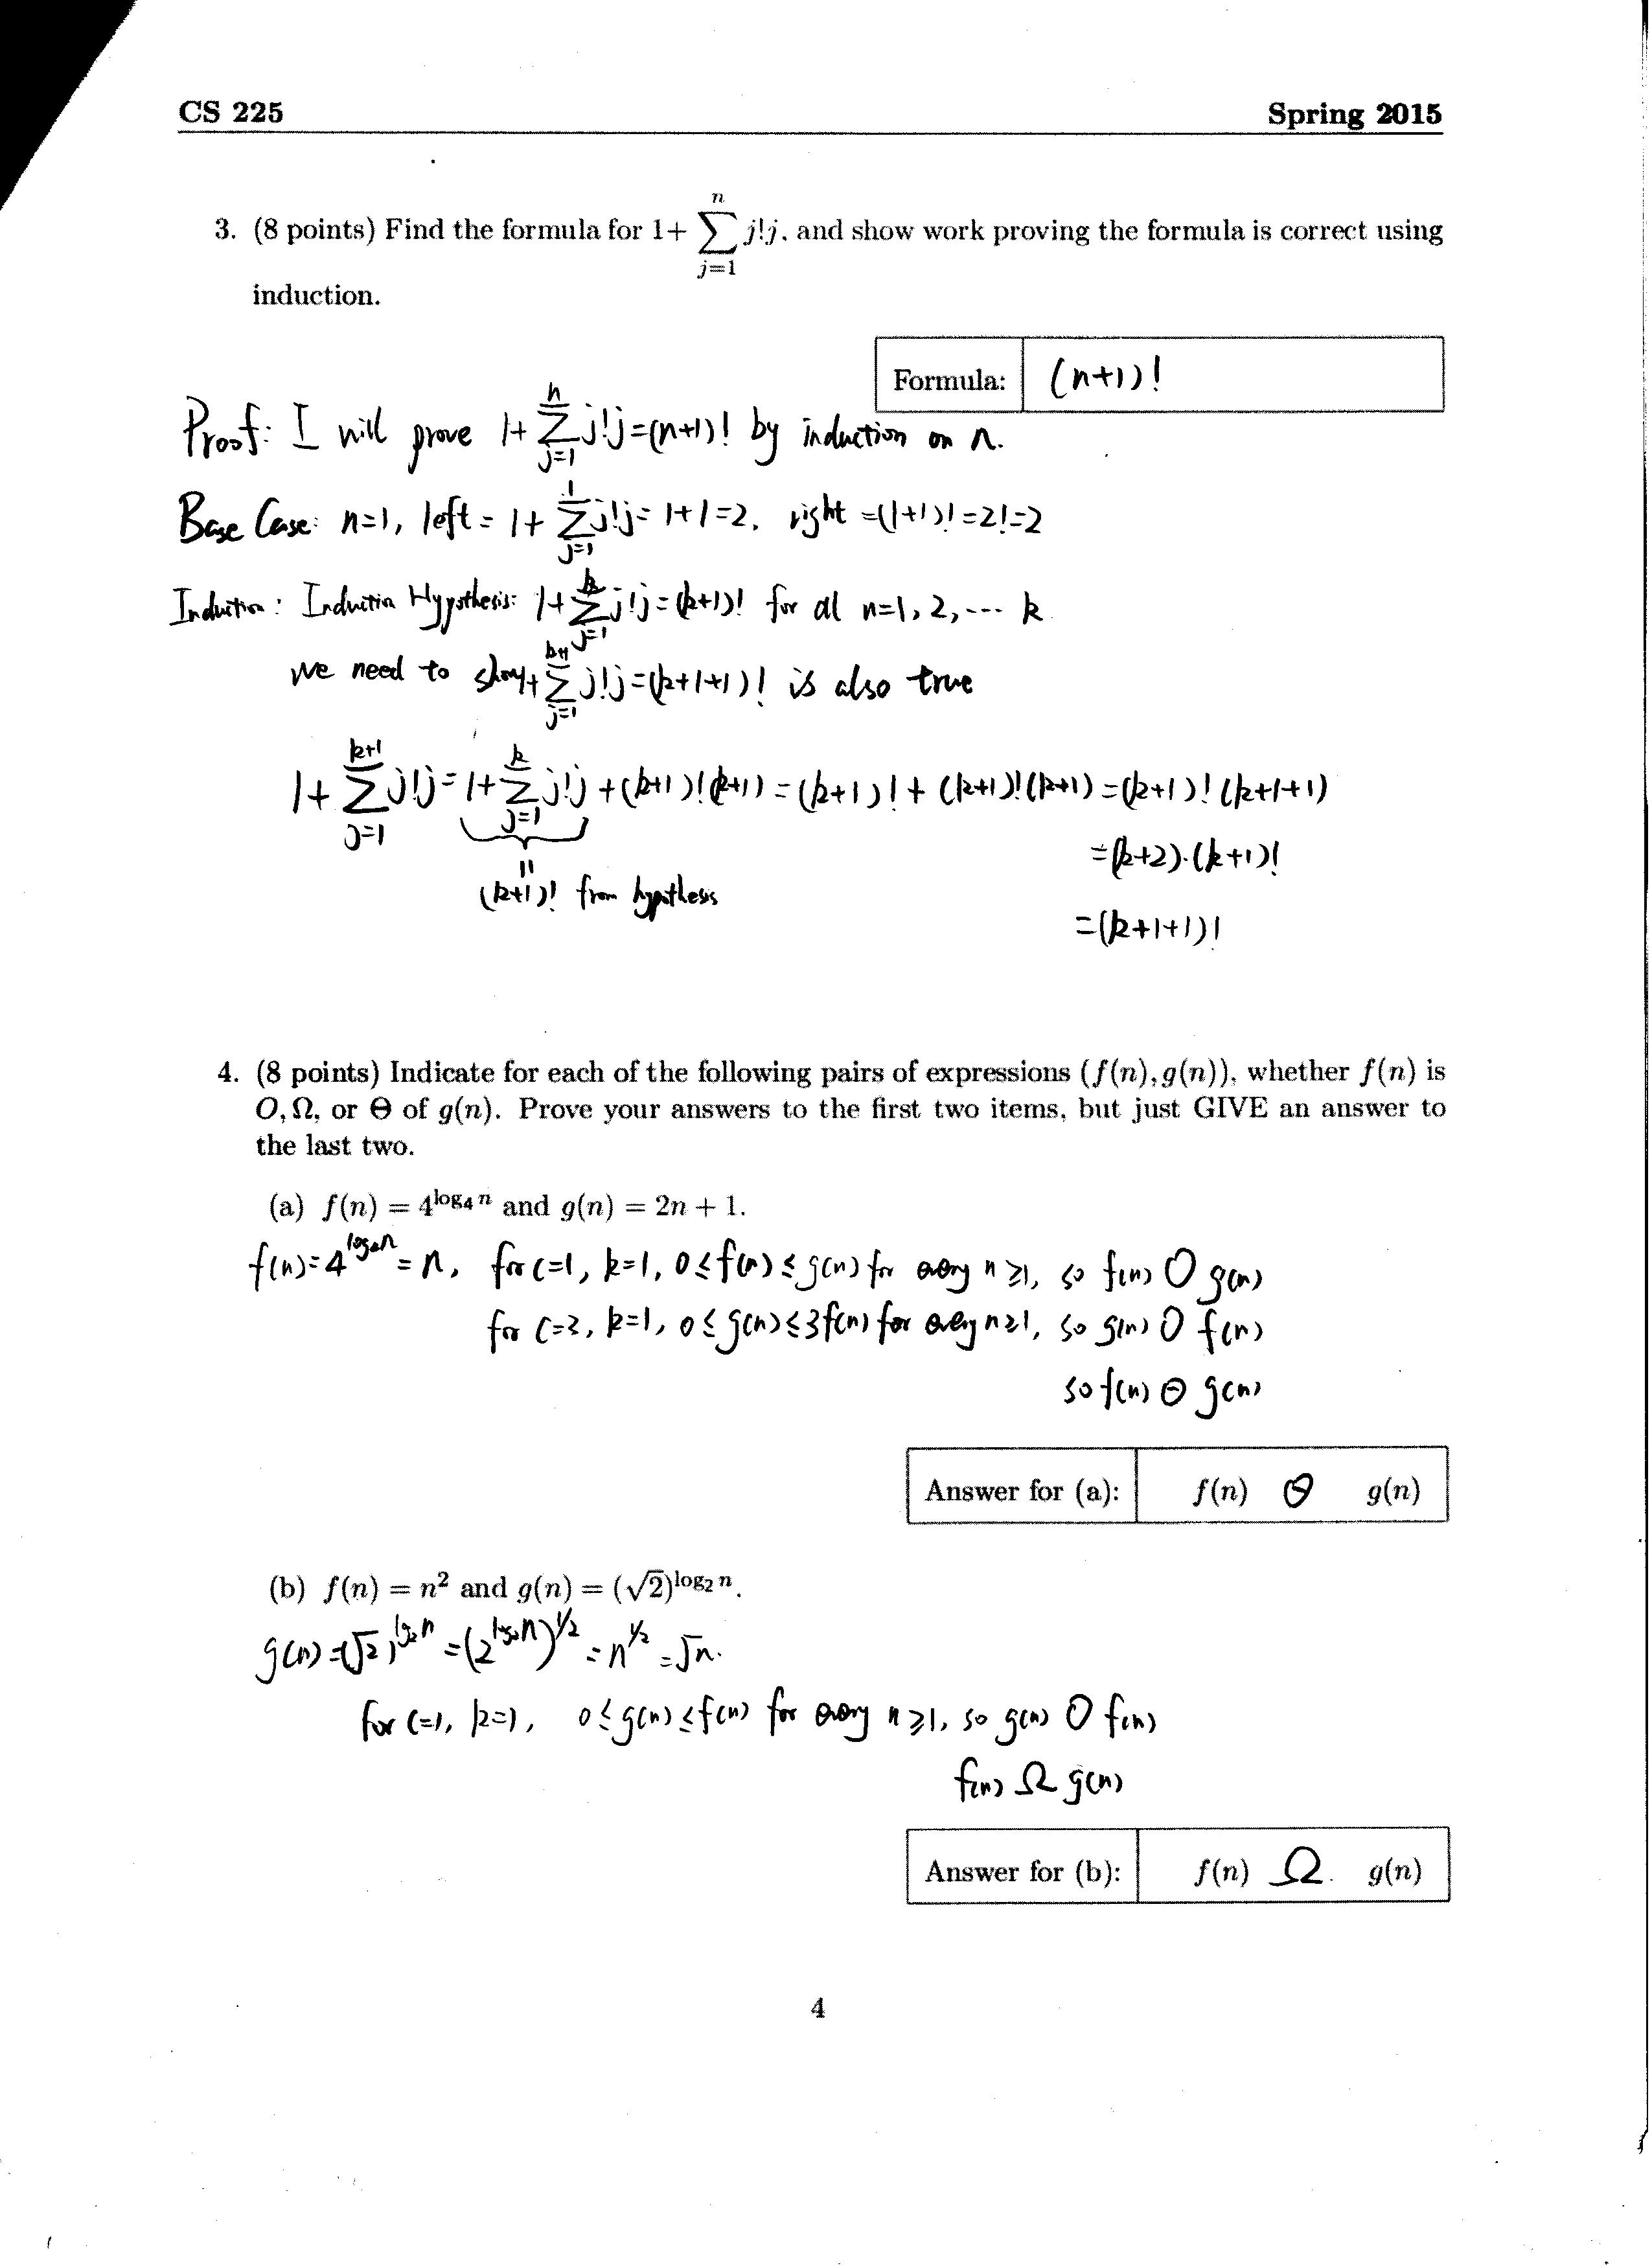 CS 225 Spring 2015
3. (8 points) Find the formula for 1+ \sum_{j=1}^{n} j!j, and show work proving the formula is correct using
induction.
Formula: (n+1)!
Proof: I will prove 1+ \sum_{j=1}^{n} j!j=(n+1)! by induction on n.
Base Case: n=1, left = 1+ \sum_{j=1}^{1} j!j= 1+1=2, right =(1+1)!=2!=2
Induction: Induction Hypothesis: 1+ \sum_{j=1}^{k} j!j=(k+1)! for all n=1, 2, ... k
we need to show 1+ \sum_{j=1}^{k+1} j!j=(k+1+1)! is also true
1+ \sum_{j=1}^{k+1} j!j = 1+ \sum_{j=1}^{k} j!j +(k+1)!(k+1) = (k+1)! + (k+1)!(k+1) =(k+1)! (k+1+1)
=(k+2)·(k+1)!
" (k+1)! from hypothesis
=(k+1+1)!
4. (8 points) Indicate for each of the following pairs of expressions (f(n), g(n)), whether f(n) is
O, Ω, or Θ of g(n). Prove your answers to the first two items, but just GIVE an answer to
the last two.
(a) f(n) = 4^{log₄ n} and g(n) = 2n + 1.
f(n)=4^{log₄n} = n, for c=1, k=1, 0≤f(n)≤g(n) for every n≥1, so f(n) O g(n)
for c=3, k=1, 0≤g(n)≤3f(n) for every n≥1, so g(n) O f(n)
so f(n) Θ g(n)
Answer for (a): f(n) Θ g(n)
(b) f(n) = n² and g(n) = (√2)^{log₂ n}.
g(n) =(√2)^{log₂n} =(2^{log₂n})^{1/2} = n^{1/2} =√n.
for c=1, k=1, 0≤g(n)≤f(n) for every n≥1, so g(n) O f(n)
f(n) Ω g(n)
Answer for (b): f(n) Ω. g(n)
4